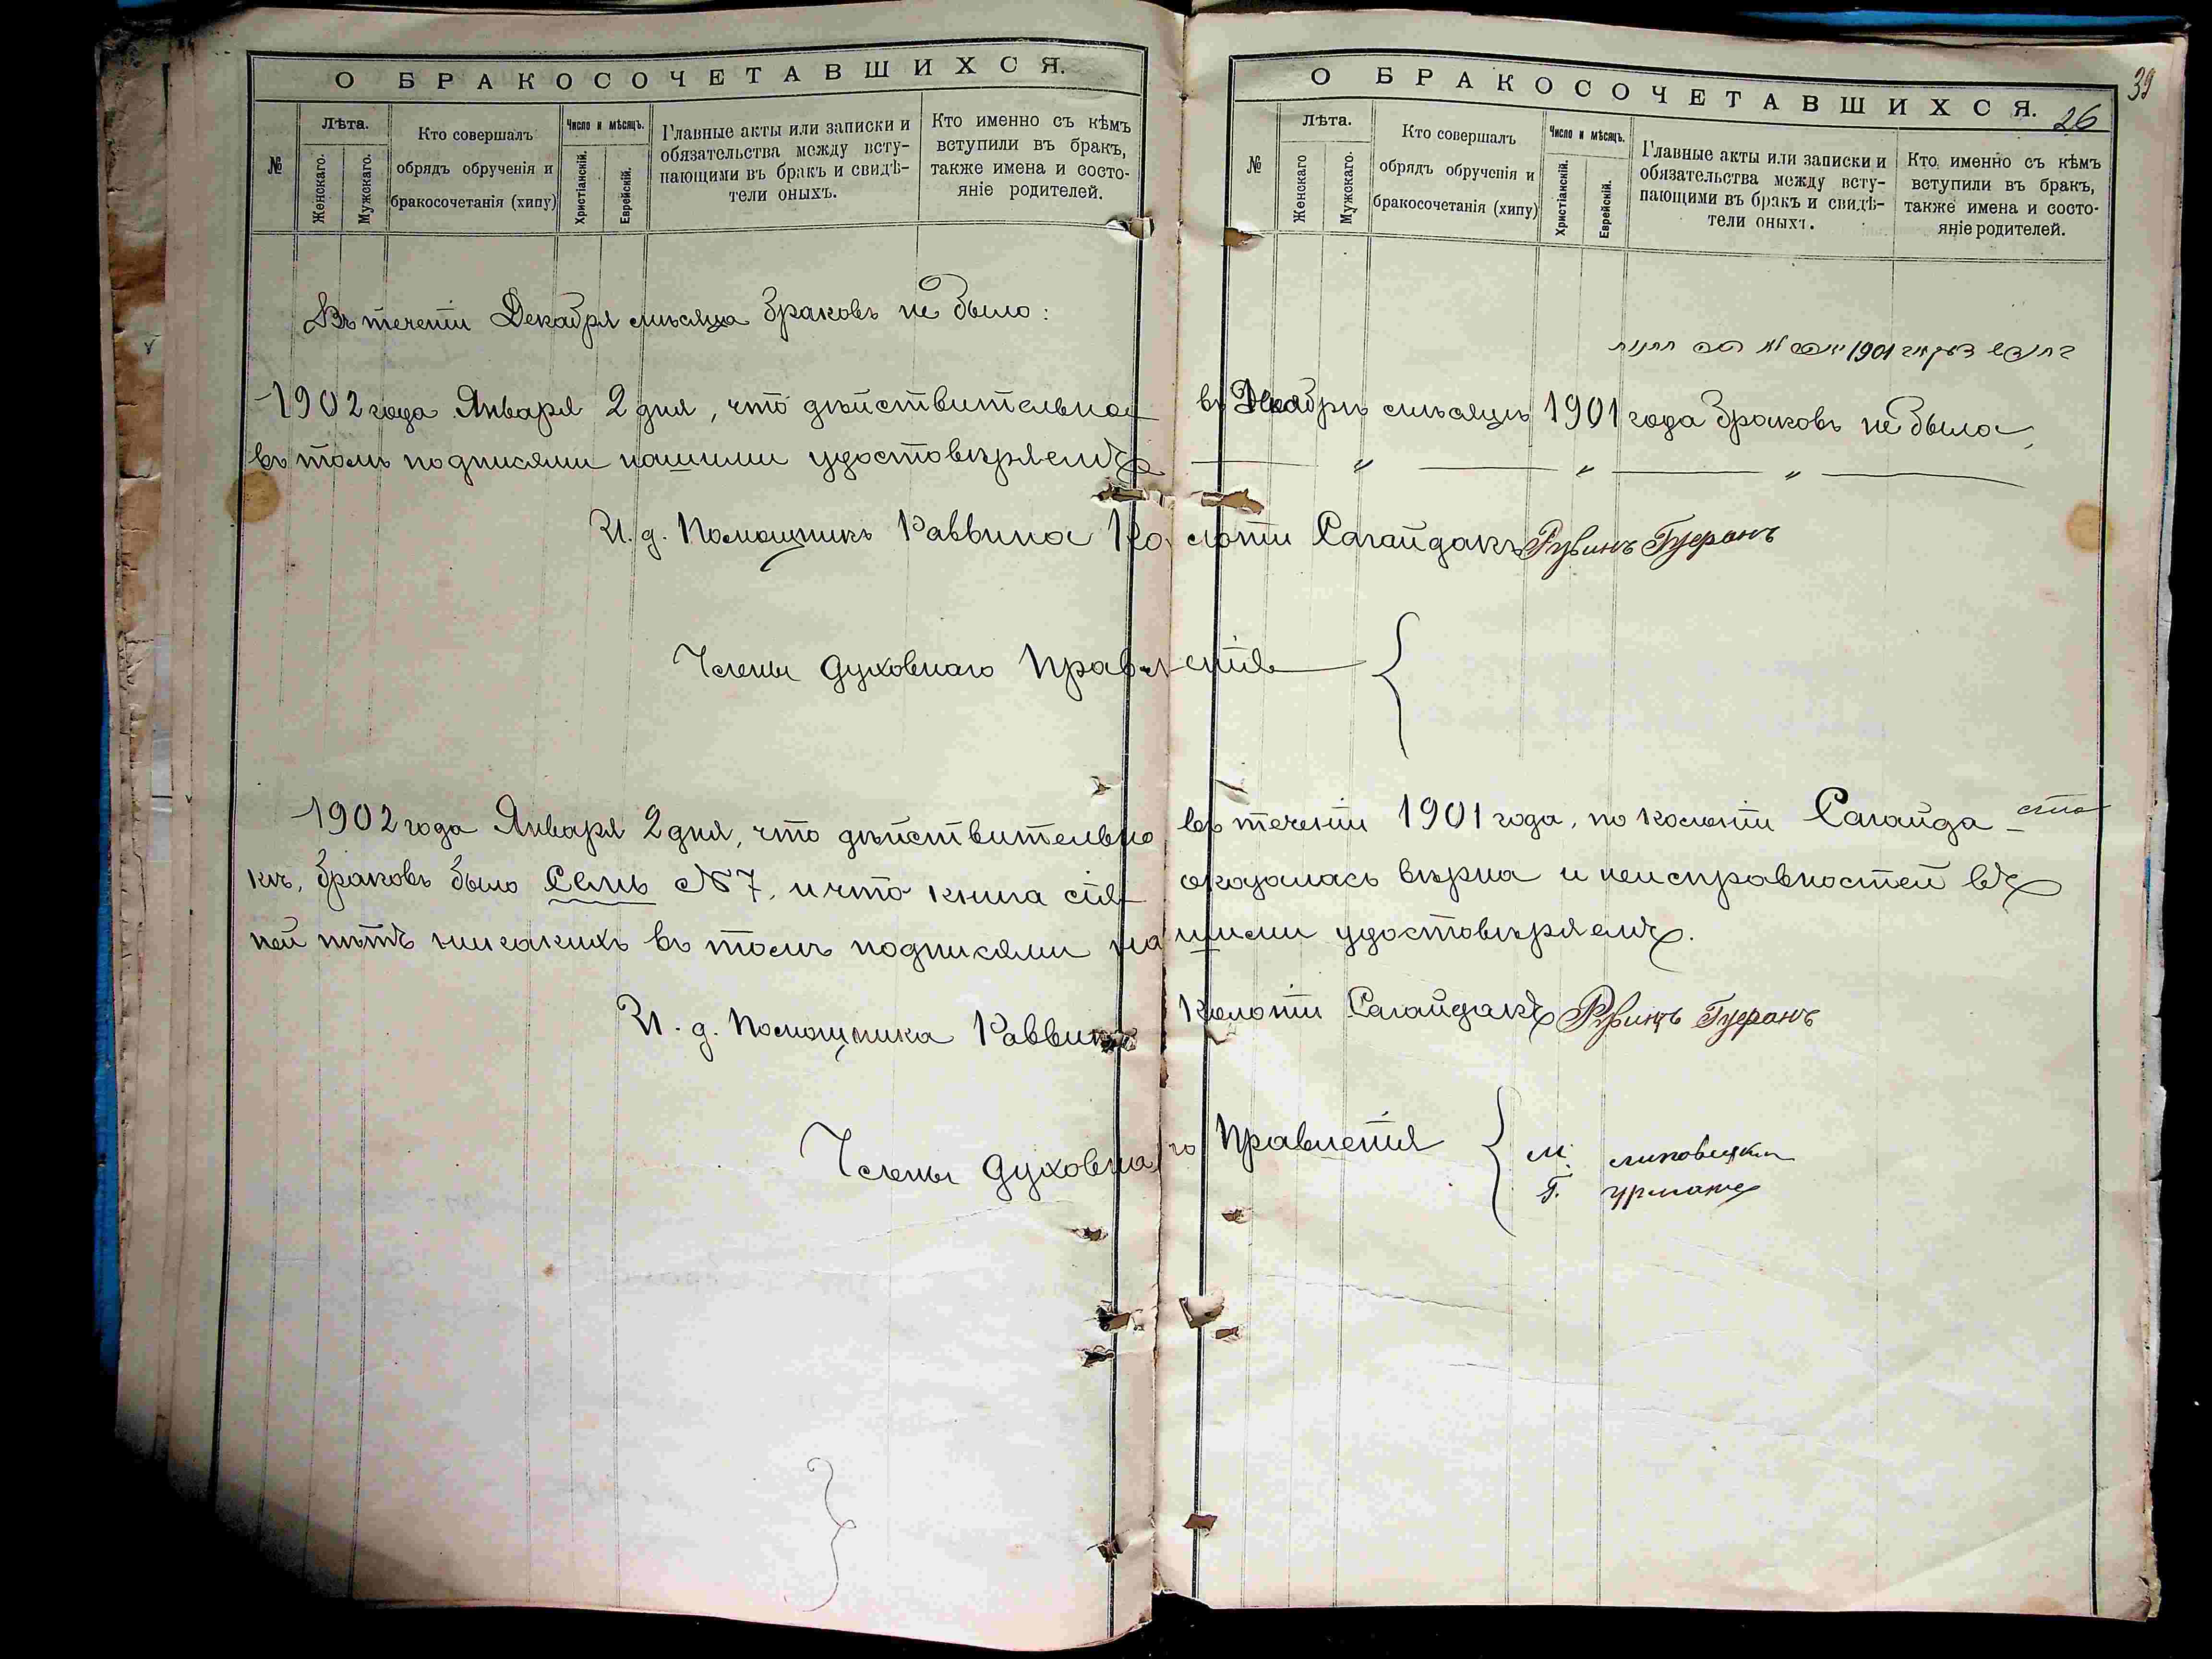 О БРАКОСОЧЕТАВШИХСЯ.
№
Лѣта.
Женскаго.
Мужскаго.
Кто совершалъ
обрядъ обрученія и
бракосочетанія (хипу)
Число и мѣсяцъ.
Христіанскій.
Еврейскій.
Главные акты или записки и
обязательства между всту-
пающими въ бракъ и свидѣ-
тели оныхъ.
Кто именно съ кѣмъ
вступили въ бракъ,
также имена и состо-
яніе родителей.
Въ теченіи Декабря мѣсяца браковъ не было:
О БРАКОСОЧЕТАВШИХСЯ.
39
26
№
Лѣта.
Женскаго
Мужскаго.
Кто совершалъ
обрядъ обрученія и
бракосочетанія (хипу)
Число и мѣсяцъ.
Христіанскій.
Еврейскій.
Главные акты или записки и
обязательства между всту-
пающими въ бракъ и свидѣ-
тели оныхъ.
Кто именно съ кѣмъ
вступили въ бракъ,
также имена и состо-
яніе родителей.
1901
1902 года Января 2 дня, что дѣйствительно въ Декабрѣ мѣсяцѣ 1901 года браковъ не было,
въ томъ подписями нашими удостовѣряемъ
И. д. Помощникъ Раввина Колоніи Сагайдакъ Рувинъ Гуеранъ
Члены Духовнаго Правленія
1902 года Января 2 дня, что дѣйствительно въ теченіи 1901 года, по колоніи Сагайда-
къ, браковъ было Семь № 7, и что книга сія оказалась вѣрна и неисправностей въ
ней нѣтъ никакихъ въ томъ подписями нашими удостовѣряемъ.
И. д. Помощника Раввина Колоніи Сагайдакъ Рувинъ Гуеранъ
Члены Духовнаго Правленія
М.
Г.